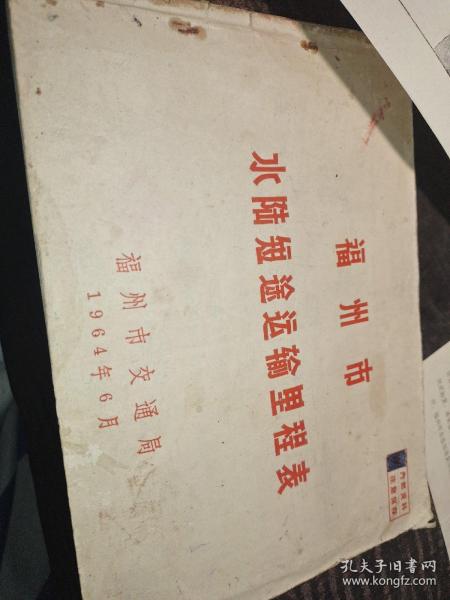 福州市
水陆短途运输里程表
福州市交通局
1964年6月
内部资料
注意保存
孔夫子旧书网
www.kongfz.com